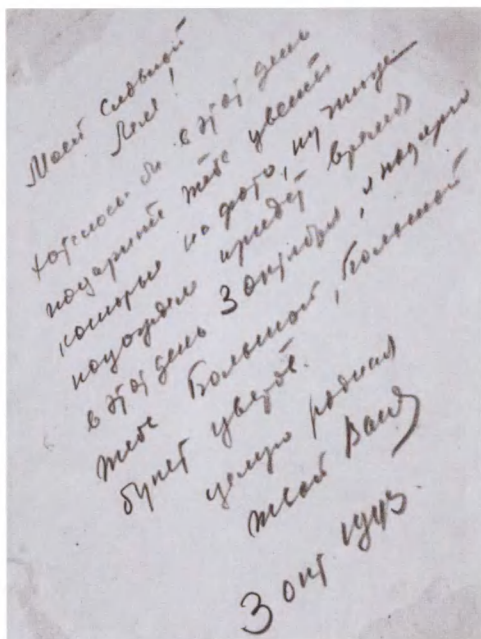 Моей славной
Леле!
хотелось бы в этот день
подарить тебе цветы
которые на фото, ну ничего
подождем придет время
в этот день 3 октября, я подарю
тебе большой, большой
букет цветов.
целую родная
твой Ваня
3 окт 1943.